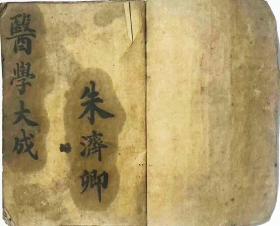 醫學大成
朱濟卿